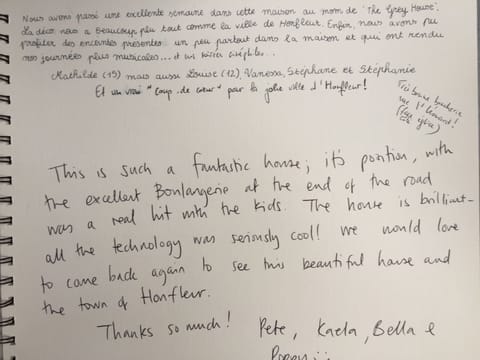 Nous avons passé une excellente semaine dans cette maison au nom de "The Grey House".
La déco nous a beaucoup plu tout comme la ville de Honfleur. Enfin, nous avons pu
profiter des enceintes présentes un peu partout dans la maison et qui ont rendu
nos journées plus musicales... et nos soirées
Mathilde (15) mais aussi Louise (12), Vanessa, Stéphane et Stéphanie
Et un vrai "coup de cœur" pour la jolie ville d'Honfleur!
Très bonne
rue l'
This is such a fantastic house; it's position, with
the excellent Boulangerie at the end of the road
was a real hit with the kids. The house is brilliant -
all the technology was seriously cool! We would love
to come back again to see this beautiful house and
the town of Honfleur.
Thanks so much! Pete, Kaela, Bella &
Poppy